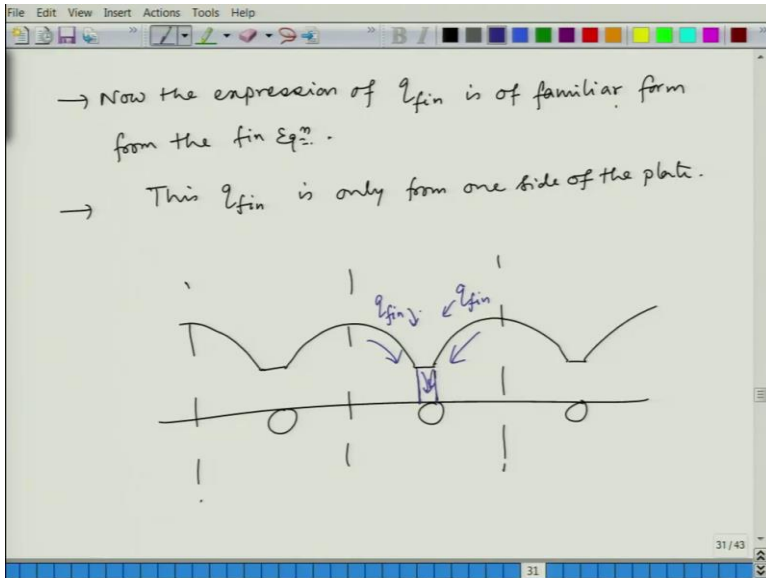 File Edit View Insert Actions Tools Help
B I
→ Now the expression of q_fin is of familiar form
from the fin Eqⁿ.
→ This q_fin is only from one side of the plate.
q_fin q_fin
31/43
31